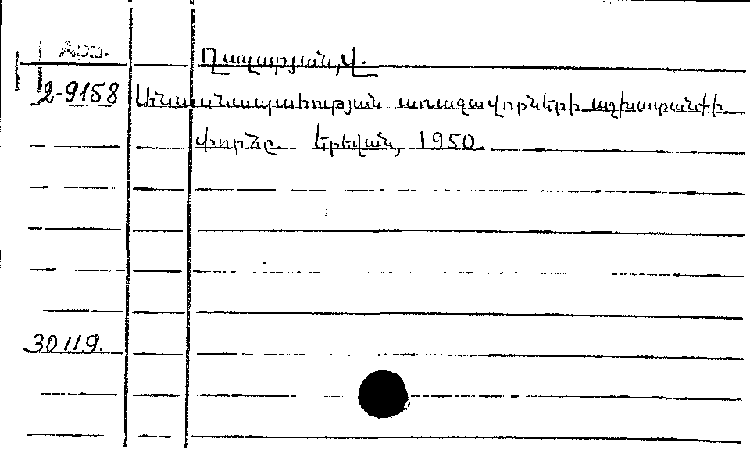 Арм.
Ղազարյան, Վ.
2-9158 Անասնապահության առաջավորների աշխատանքի
փորձը. Երեվան, 1950.
30119.